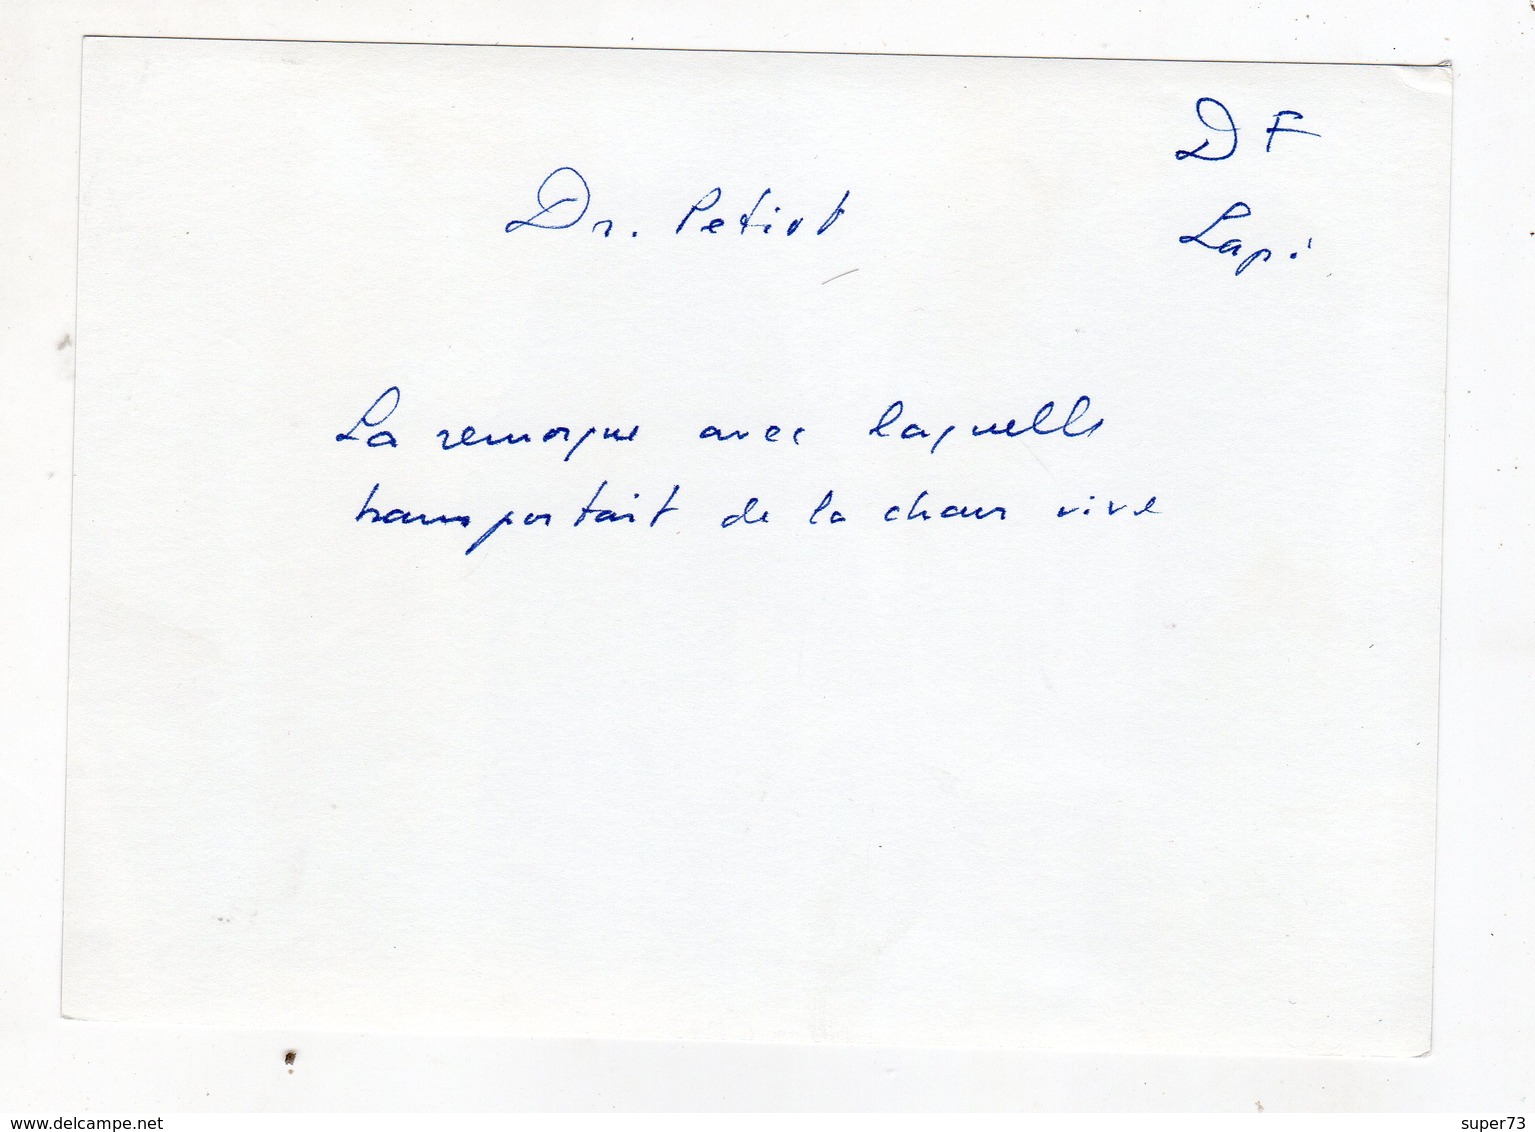 D F
Lapi
Dr. Petiot
La remorque avec laquelle
transportait de la chaux vive
www.delcampe.net
super73